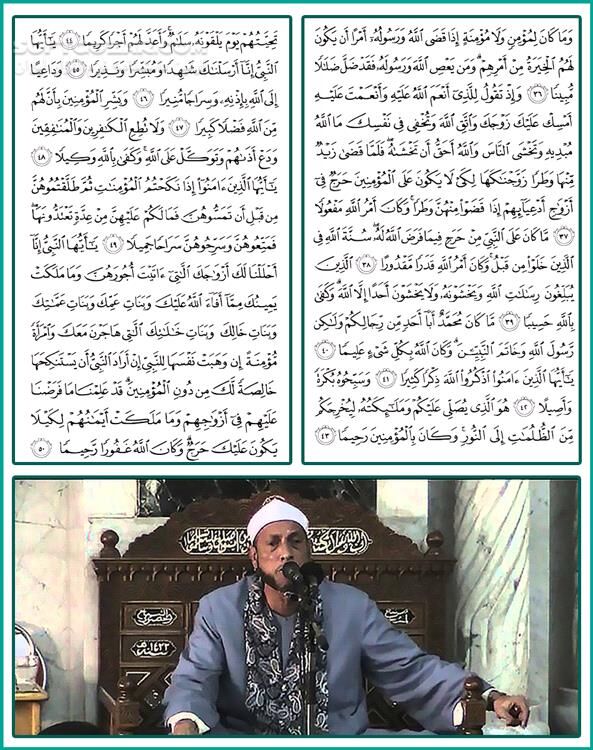 وَمَا كَانَ لِمُؤْمِنٍ وَلَا مُؤْمِنَةٍ إِذَا قَضَى ٱللَّهُ وَرَسُولُهُۥٓ أَمْرًا أَن يَكُونَ
لَهُمُ ٱلْخِيَرَةُ مِنْ أَمْرِهِمْ ۗ وَمَن يَعْصِ ٱللَّهَ وَرَسُولَهُۥ فَقَدْ ضَلَّ ضَلَٰلًا
مُّبِينًا ٣٦ وَإِذْ تَقُولُ لِلَّذِىٓ أَنْعَمَ ٱللَّهُ عَلَيْهِ وَأَنْعَمْتَ عَلَيْهِ
أَمْسِكْ عَلَيْكَ زَوْجَكَ وَٱتَّقِ ٱللَّهَ وَتُخْفِى فِى نَفْسِكَ مَا ٱللَّهُ
مُبْدِيهِ وَتَخْشَى ٱلنَّاسَ وَٱللَّهُ أَحَقُّ أَن تَخْشَىٰهُ ۖ فَلَمَّا قَضَىٰ زَيْدٌ
مِّنْهَا وَطَرًا زَوَّجْنَٰكَهَا لِكَىْ لَا يَكُونَ عَلَى ٱلْمُؤْمِنِينَ حَرَجٌ فِىٓ
أَزْوَٰجِ أَدْعِيَآئِهِمْ إِذَا قَضَوْا۟ مِنْهُنَّ وَطَرًا ۚ وَكَانَ أَمْرُ ٱللَّهِ مَفْعُولًا
٣٧ مَّا كَانَ عَلَى ٱلنَّبِىِّ مِنْ حَرَجٍ فِيمَا فَرَضَ ٱللَّهُ لَهُۥ ۖ سُنَّةَ ٱللَّهِ فِى
ٱلَّذِينَ خَلَوْا۟ مِن قَبْلُ ۚ وَكَانَ أَمْرُ ٱللَّهِ قَدَرًا مَّقْدُورًا ٣٨ ٱلَّذِينَ
يُبَلِّغُونَ رِسَٰلَٰتِ ٱللَّهِ وَيَخْشَوْنَهُۥ وَلَا يَخْشَوْنَ أَحَدًا إِلَّا ٱللَّهَ ۗ وَكَفَىٰ
بِٱللَّهِ حَسِيبًا ٣٩ مَّا كَانَ مُحَمَّدٌ أَبَآ أَحَدٍ مِّن رِّجَالِكُمْ وَلَٰكِن
رَّسُولَ ٱللَّهِ وَخَاتَمَ ٱلنَّبِيِّـۧنَ ۗ وَكَانَ ٱللَّهُ بِكُلِّ شَىْءٍ عَلِيمًا ٤٠
يَٰٓأَيُّهَا ٱلَّذِينَ ءَامَنُوا۟ ٱذْكُرُوا۟ ٱللَّهَ ذِكْرًا كَثِيرًا ٤١ وَسَبِّحُوهُ بُكْرَةً
وَأَصِيلًا ٤٢ هُوَ ٱلَّذِى يُصَلِّى عَلَيْكُمْ وَمَلَٰٓئِكَتُهُۥ لِيُخْرِجَكُم
مِّنَ ٱلظُّلُمَٰتِ إِلَى ٱلنُّورِ ۚ وَكَانَ بِٱلْمُؤْمِنِينَ رَحِيمًا ٤٣
تَحِيَّتُهُمْ يَوْمَ يَلْقَوْنَهُۥ سَلَٰمٌ ۚ وَأَعَدَّ لَهُمْ أَجْرًا كَرِيمًا ٤٤ يَٰٓأَيُّهَا
ٱلنَّبِىُّ إِنَّآ أَرْسَلْنَٰكَ شَٰهِدًا وَمُبَشِّرًا وَنَذِيرًا ٤٥ وَدَاعِيًا
إِلَى ٱللَّهِ بِإِذْنِهِۦ وَسِرَاجًا مُّنِيرًا ٤٦ وَبَشِّرِ ٱلْمُؤْمِنِينَ بِأَنَّ لَهُم
مِّنَ ٱللَّهِ فَضْلًا كَبِيرًا ٤٧ وَلَا تُطِعِ ٱلْكَٰفِرِينَ وَٱلْمُنَٰفِقِينَ
وَدَعْ أَذَىٰهُمْ وَتَوَكَّلْ عَلَى ٱللَّهِ ۚ وَكَفَىٰ بِٱللَّهِ وَكِيلًا ٤٨
يَٰٓأَيُّهَا ٱلَّذِينَ ءَامَنُوٓا۟ إِذَا نَكَحْتُمُ ٱلْمُؤْمِنَٰتِ ثُمَّ طَلَّقْتُمُوهُنَّ
مِن قَبْلِ أَن تَمَسُّوهُنَّ فَمَا لَكُمْ عَلَيْهِنَّ مِنْ عِدَّةٍ تَعْتَدُّونَهَا ۖ
فَمَتِّعُوهُنَّ وَسَرِّحُوهُنَّ سَرَاحًا جَمِيلًا ٤٩ يَٰٓأَيُّهَا ٱلنَّبِىُّ إِنَّآ
أَحْلَلْنَا لَكَ أَزْوَٰجَكَ ٱلَّٰتِىٓ ءَاتَيْتَ أُجُورَهُنَّ وَمَا مَلَكَتْ
يَمِينُكَ مِمَّآ أَفَآءَ ٱللَّهُ عَلَيْكَ وَبَنَاتِ عَمِّكَ وَبَنَاتِ عَمَّٰتِكَ
وَبَنَاتِ خَالِكَ وَبَنَاتِ خَٰلَٰتِكَ ٱلَّٰتِى هَاجَرْنَ مَعَكَ وَٱمْرَأَةً
مُّؤْمِنَةً إِن وَهَبَتْ نَفْسَهَا لِلنَّبِىِّ إِنْ أَرَادَ ٱلنَّبِىُّ أَن يَسْتَنكِحَهَا
خَالِصَةً لَّكَ مِن دُونِ ٱلْمُؤْمِنِينَ ۗ قَدْ عَلِمْنَا مَا فَرَضْنَا
عَلَيْهِمْ فِىٓ أَزْوَٰجِهِمْ وَمَا مَلَكَتْ أَيْمَٰنُهُمْ لِكَيْلَا
يَكُونَ عَلَيْكَ حَرَجٌ ۗ وَكَانَ ٱللَّهُ غَفُورًا رَّحِيمًا ٥٠
١٤٢٢هـ